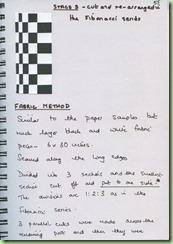 STAGE 3 - cut and re-arranged in
the Fibonacci series
FABRIC METHOD
Similar to the paper samples but
much larger black and white fabric
pieces - 6 x 30 inches.
Seamed along the long edges
Divided into 3 sections and the smallest
section cut off and put to one side.
The divisions are 1:2:3 as in the
Fibonacci series.
3 parallel cuts were made across the
remaining part and then they were